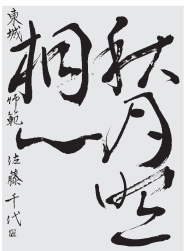 秋月照
桐心
東城 師範 佐藤千代